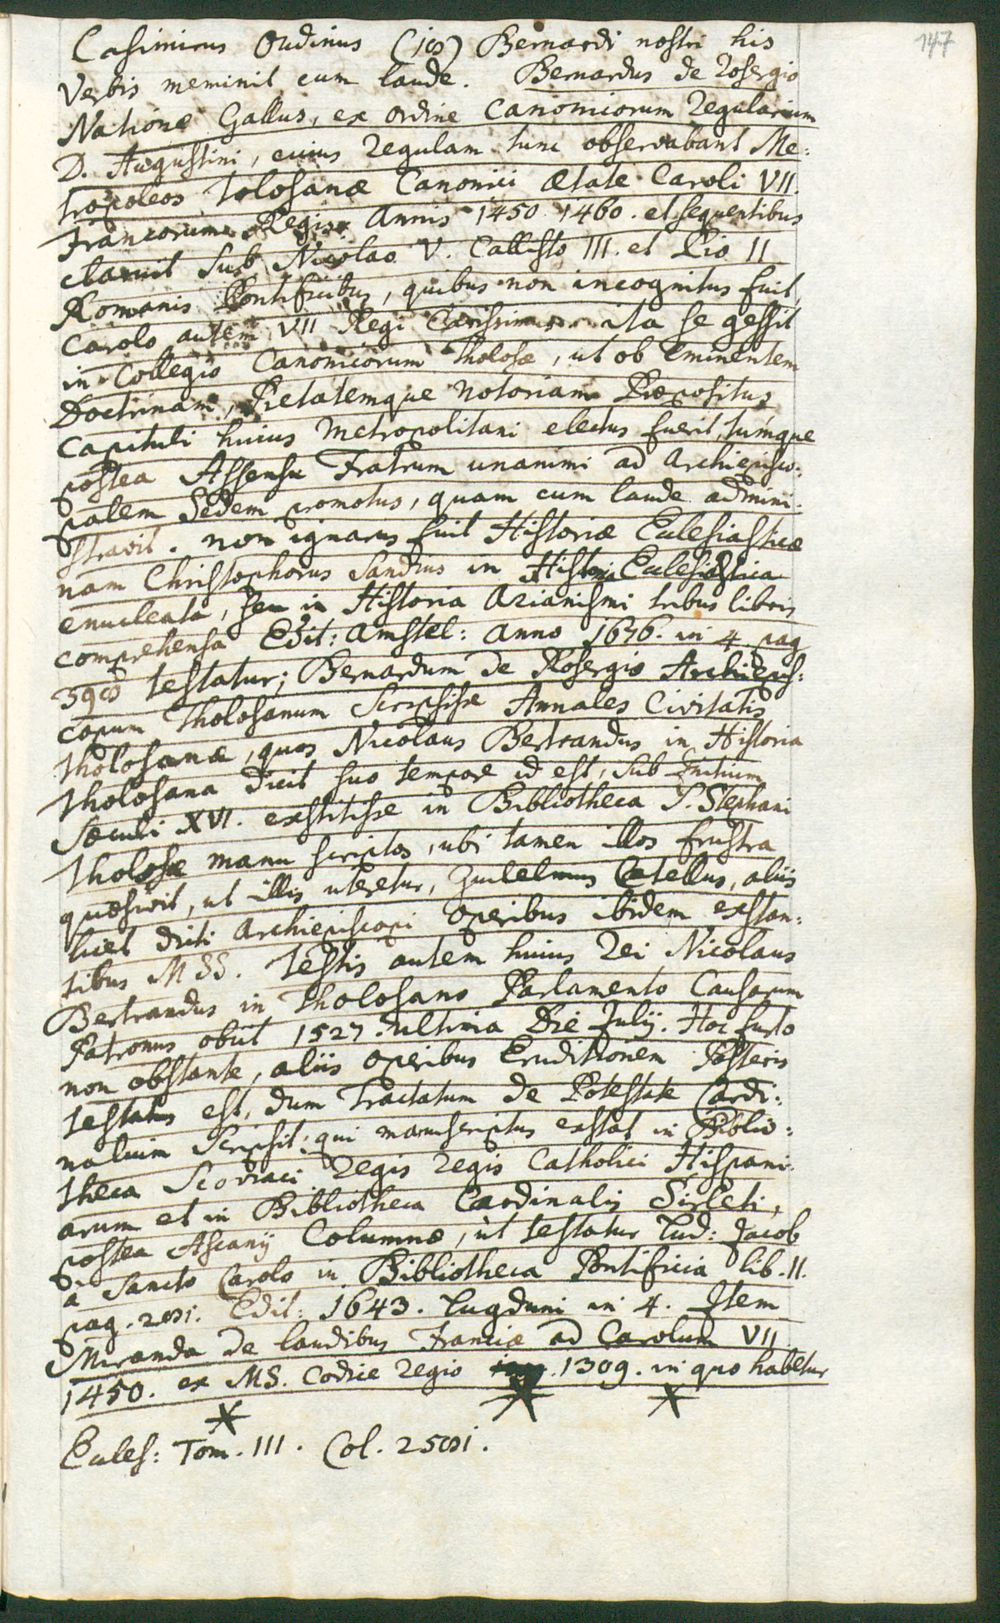 147
Casimirus Oudinus (jes) Bernardi nostri his
Verbis meminit cum laude. Bernardus de Rosergio
Natione Gallus, ex ordine Canonicorum Regularium
D. Augustini, cuius Regulam tunc observabant Me:
tropoleos Tolosanæ Canonici ætate Caroli VII.
Francorum Regis. annis 1450. 1460. et sequentibus
claruit sub Nicolao V. Callisto III. et Pio II
Romanis Pontificibus, quibus non incognitus fuit,
Carolo autem VII Regi Carissimus. ita se gessit
in Collegio Canonicorum Tholosæ, ut ob eminentem
Doctrinam, Pietatemque notoriam Præpositus
Capituli huius Metropolitani electus fuerit, tumque
postea Assensu Fratrum unanimi ad Archiepisco:
palem Sedem promotus, quam cum laude admini:
stravit. non ignarus fuit Historiæ Eclesiasticæ
nam Christophorus Sandius in Historia Eclesiastica
enucleata, seu in Historia Arianismi tribus libris
comprehensa Edit: Amstel: anno 1676. in 4 pag
testatur; Bernardum de Rosergio Archiepis:
copum Tholosanum Scripsisse Annales Civitatis
Tholosanæ, quos Nicolaus Bertrandus in Historia
Tholosana dicit suo tempore id est, sub Initium
Sæculi XVI. exstitisse in Bibliotheca S. Stephani
Tholosæ manu scriptos, ubi tamen illos frustra
quæsivit, ut illis uteretur, Guilelmus Catellus, aliis
licet dicti Archiepiscopi Operibus ibidem exstan:
tibus MSS. Testis autem huius Rei Nicolaus
Bertrandus in Tholosano Parlamento Causarum
Patronus obiit 1527. ultima Die Julij. Hoc furto
non obstante, aliis operibus Eruditionem Posteris
testatus est, dum Tractatum de Potestate Cardi:
nalium Scripsit; qui manuscriptus exstat in Biblio:
theca Scoriaci Regis Regis Catholici Hispani:
arum et in Bibliotheca Cardinalis Sirleti,
postea Ascanij Columnæ, ut testatur Lud: Jacob
a Sancto Carolo in Bibliotheca Pontificia lib. II.
pag. Edit: 1643. Lugduni in 4. Item
Miranda de laudibus Franciæ ad Carolum VII
1450. ex MS. Codice Regio 1309. in quo habetur
Ecles: Tom. III. Col.